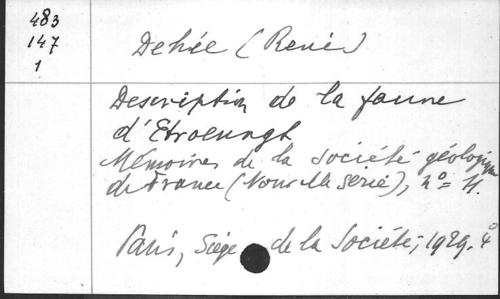 483
147
1
Dehée (René)
Description de la faune
d'Etroeungt
Mémoires de la société géologique
de France (Nouvelle série), nº 11.
Paris, Siège de la Société, 1929. 4º